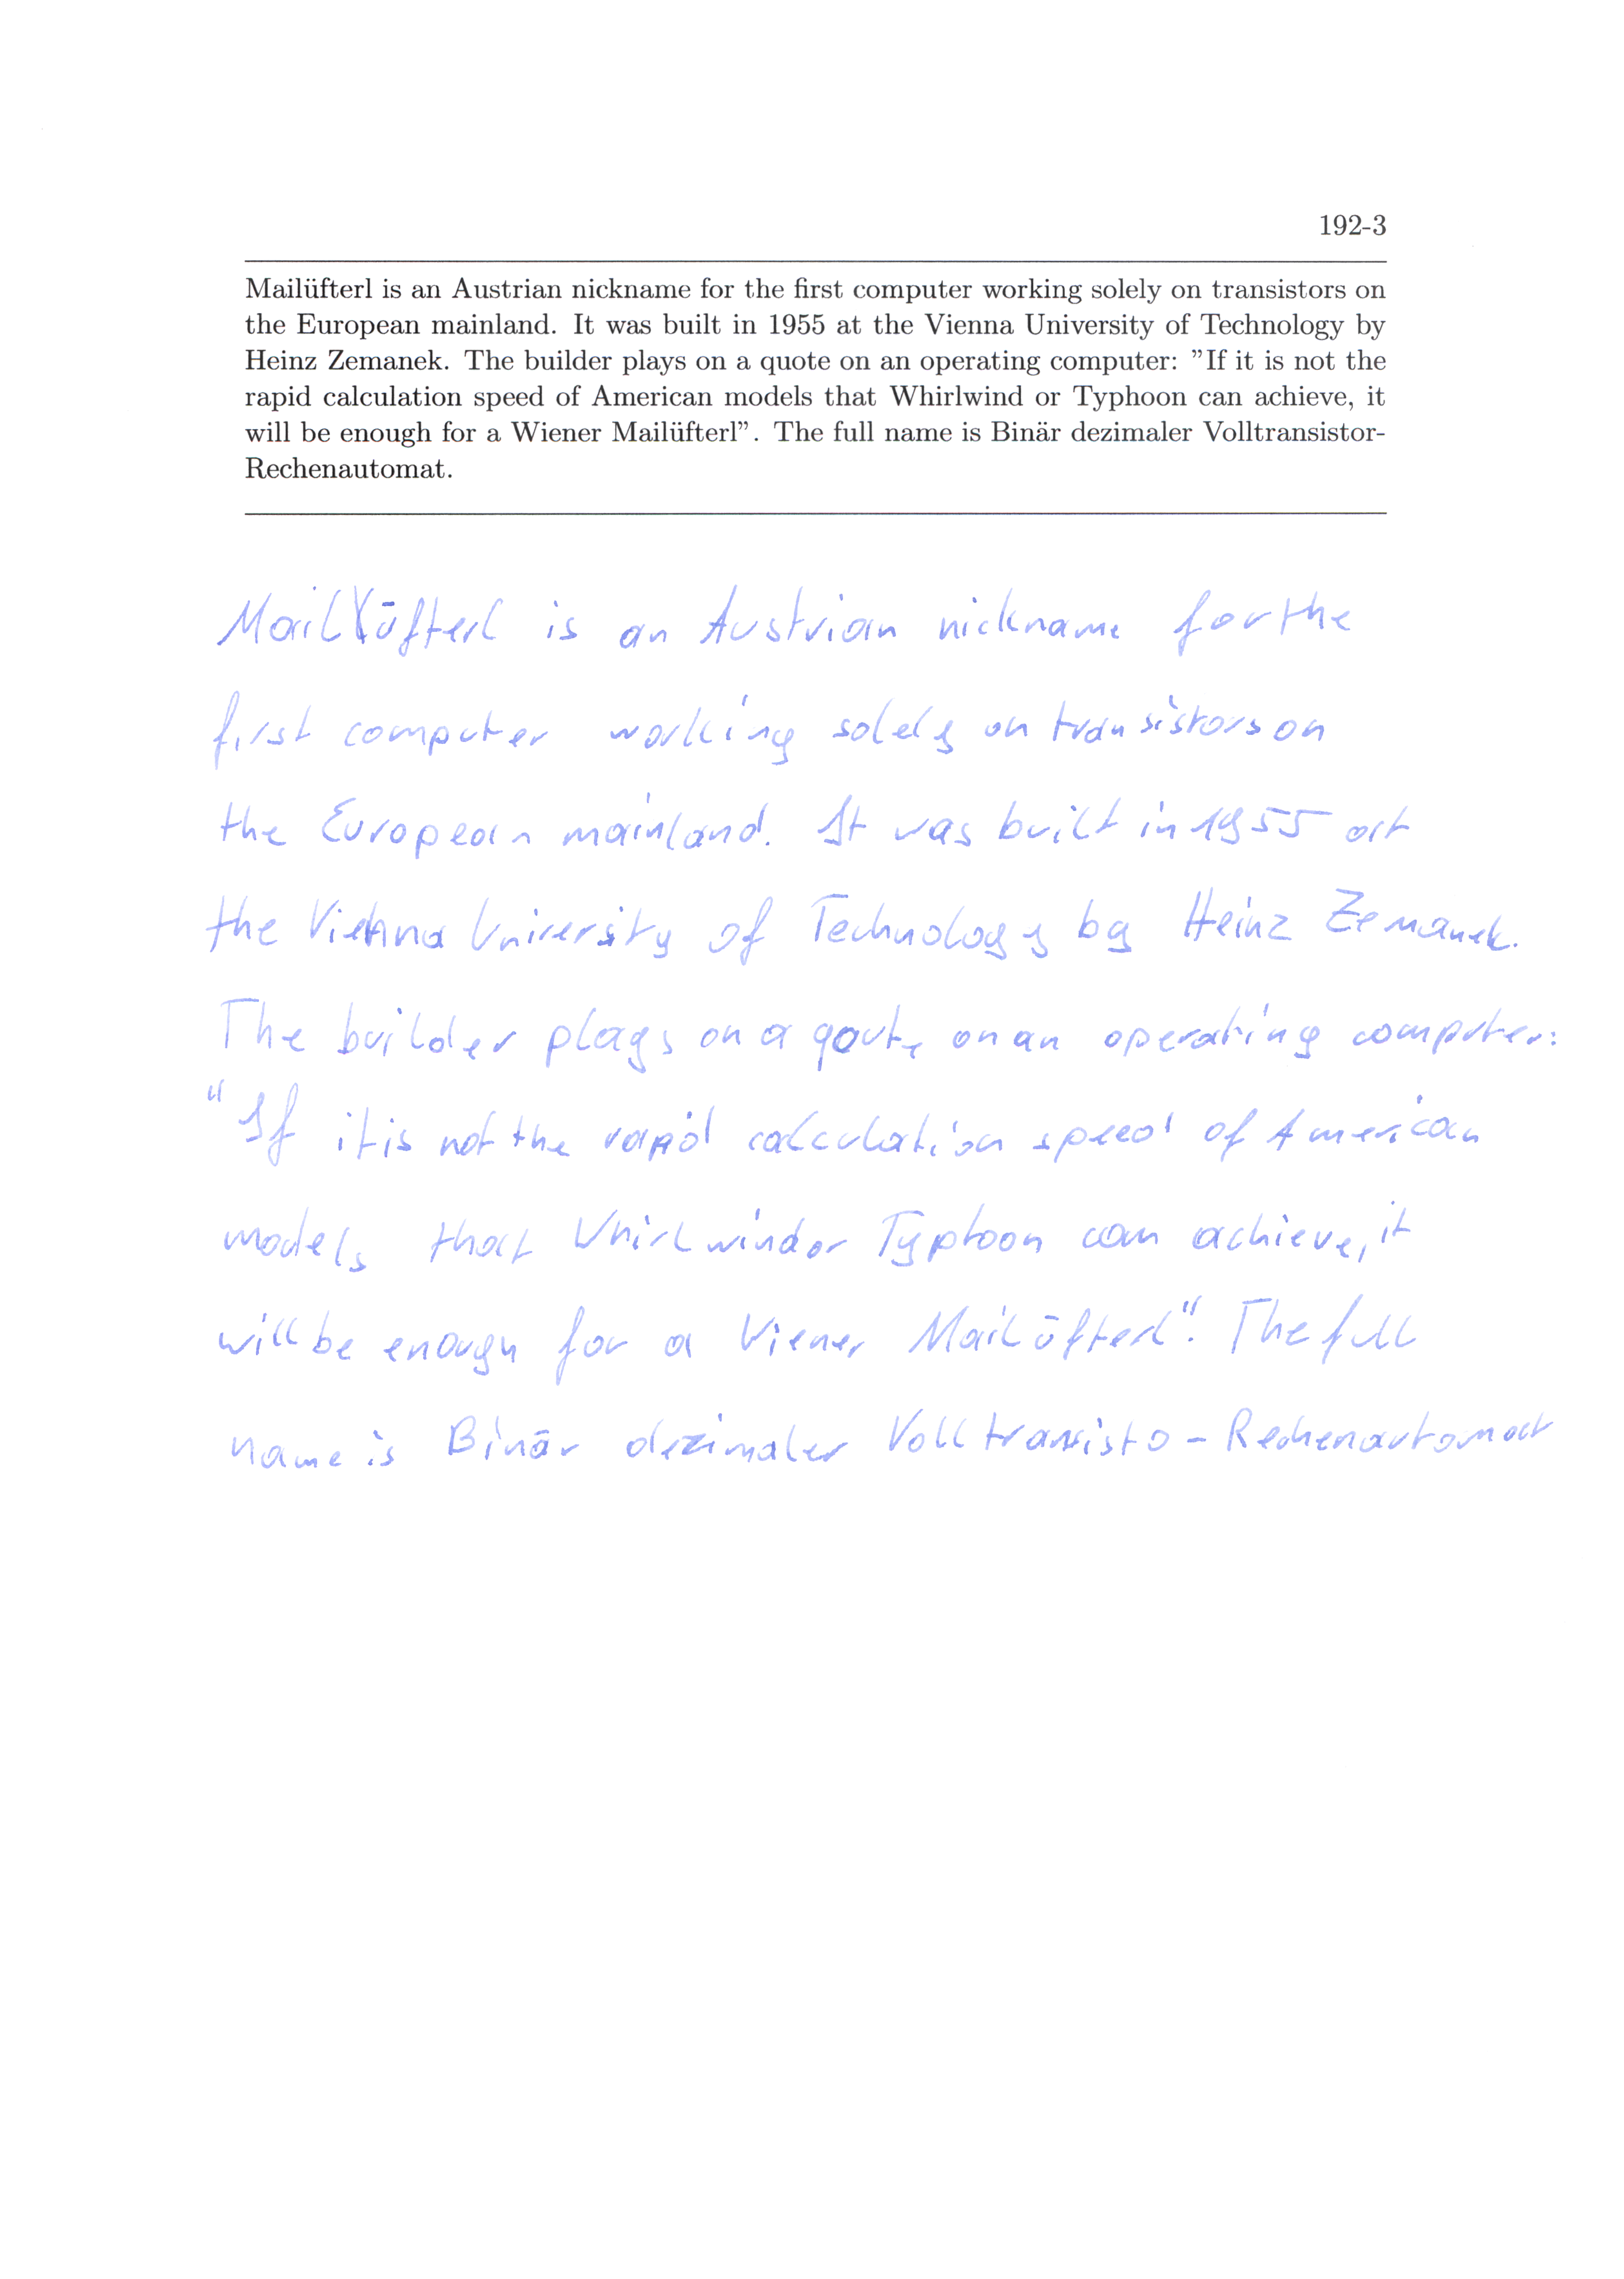 192-3
Mailüfterl is an Austrian nickname for the first computer working solely on transistors on
the European mainland. It was built in 1955 at the Vienna University of Technology by
Heinz Zemanek. The builder plays on a quote on an operating computer: ”If it is not the
rapid calculation speed of American models that Whirlwind or Typhoon can achieve, it
will be enough for a Wiener Mailüfterl”. The full name is Binär dezimaler Volltransistor-
Rechenautomat.
Mailüfterl is an Austrian nickname for the
first computer working solely on transistors on
the European mainland. It was built in 1955 at
the Vienna University of Technology by Heinz Zemanek.
The builder plays on a qoute on an operating computer:
"If it is not the rapid calculation speed of American
models that Whirlwind or Typhoon can achieve, it
will be enough for a Wiener Mailüfterl". The full
name is Binär dezimaler Volltransisto - Rechenautomat